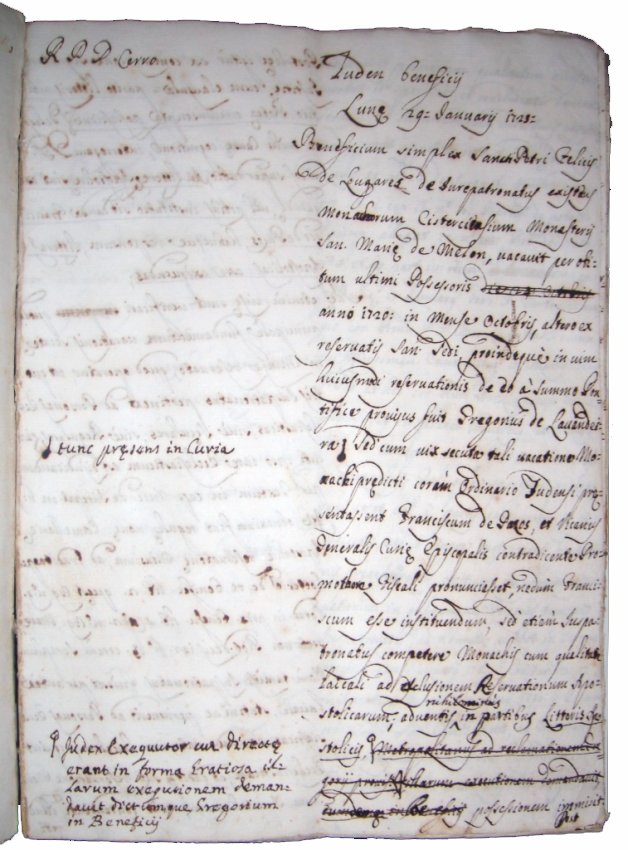 R. P. D. Cerro
Tuden beneficij
Lunę 29. Januarij 1725.
Beneficium simplex Sancti Petri Felicis
de Lugares de Jurepatronatus existens
Monachorum Cisterciensium Monasterij
San. Marię de Melon, vacavit per obi-
tum ultimi Possessoris
anno 1720. in Mense Octobris, altero ex
reservatis San. Sedi, proindequè in vim
huiusmodi reservationis de eo a Summo Pon-
tifice provisus fuit Gregorius de Lavandei-
ra | Sed cum vix secuta tali vacatione Mo-
| tunc pręsens in Curia
nachi prędicti coràm Ordinario Tudensi prę-
sentassent Franciscum de et Vicarius
Generalis Curię Episcopalis contradicente Pro-
motore Fiscali pronunciasset, nedum Franci-
scum esse instituendum, sed etiam Juspa-
tronatus competere Monachis cum qualitate
laicali ad exclusionem Reservationum Apo-
nihilominus
stolicarum, adventis in partibus Litteris Apo-
stolicis, Metropolitanus ad reclamationem Gre-
gorij illarum executionem demandavit
possessionem immisit
Judex Exequutor cui directę
erant in forma Gratiosa il-
larum exequutionem deman-
davit dictumque Gregorium
in Beneficij